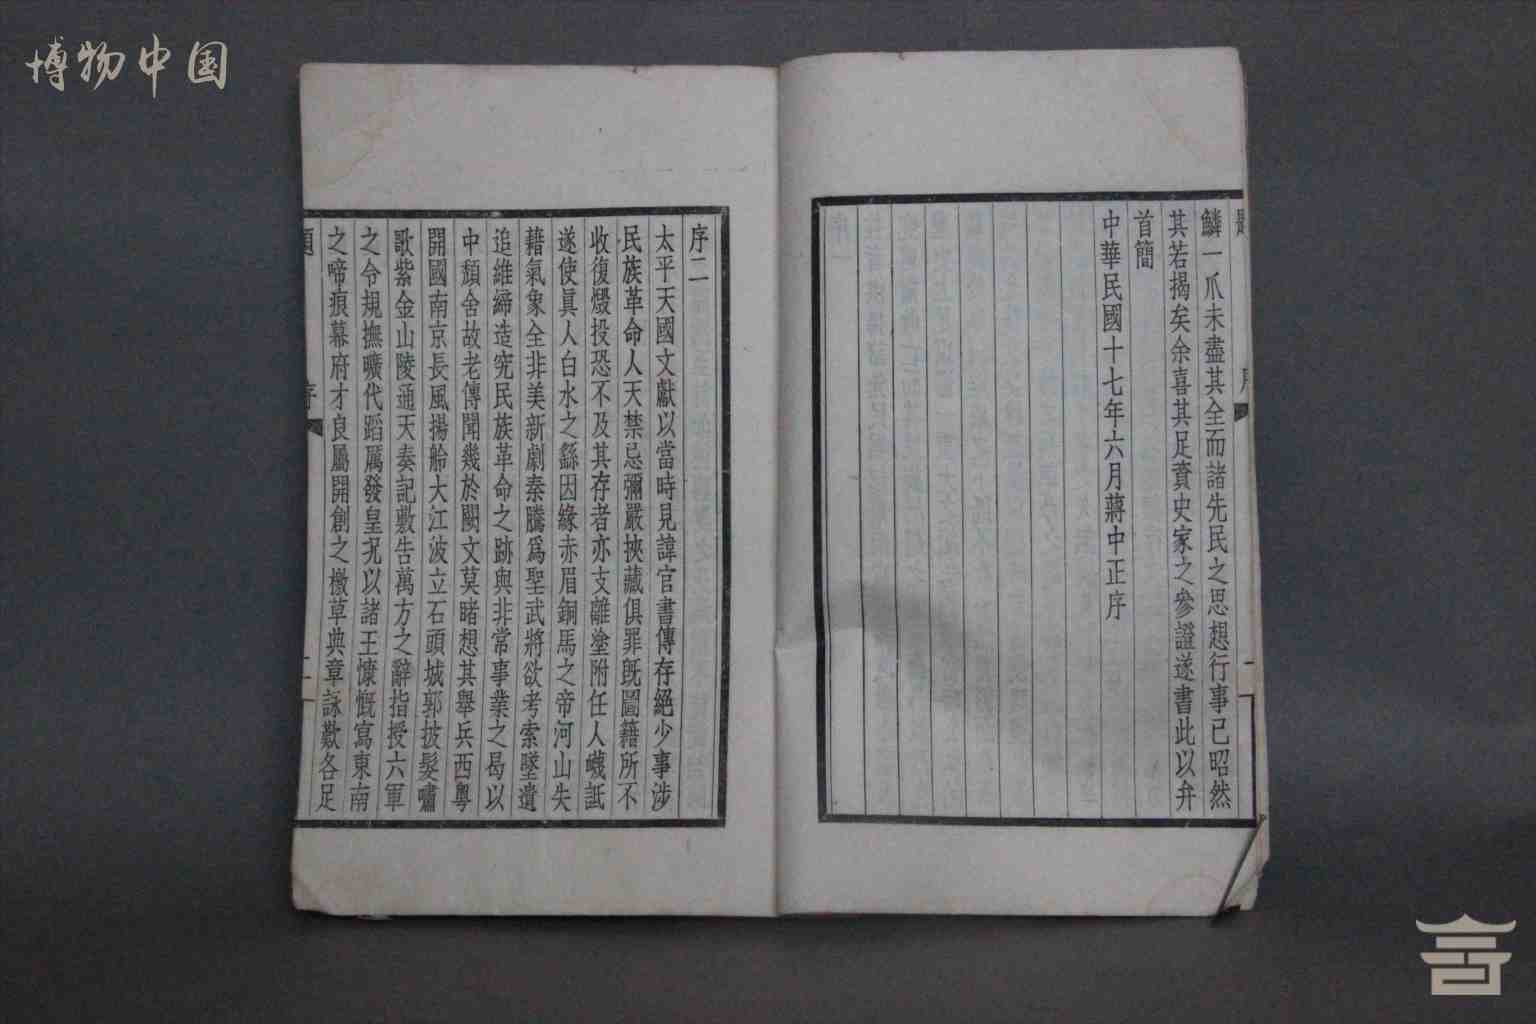 博物中国
鱗一爪未盡其全而諸先民之思想行事已昭然
其若揭矣余喜其足資史家之參證遂書此以弁
首簡
中華民國十七年六月蔣中正序
序二
太平天國文獻以當時見諱官書傳存絕少事涉
民族革命人天禁忌彌嚴挾藏俱罪既圖籍所不
收復燬投恐不及其存者亦支離塗附任人衊詆
遂使真人白水之繇因緣赤眉銅馬之帝河山失
藉氣象全非美新劇秦騰為聖武將欲考索墜遺
追維締造究民族革命之跡與非常事業之曷以
中頹舍故老傳聞幾於闕文莫睹想其舉兵西粵
開國南京長風揚舲大江波立石頭城郭披髮嘯
歌紫金山陵通天奏記敷告萬方之辭指授六軍
之令規撫曠代蹈厲發皇尤以諸王慷慨寫東南
之啼痕幕府才良屬開創之檄草典章詠歎各足
序
二